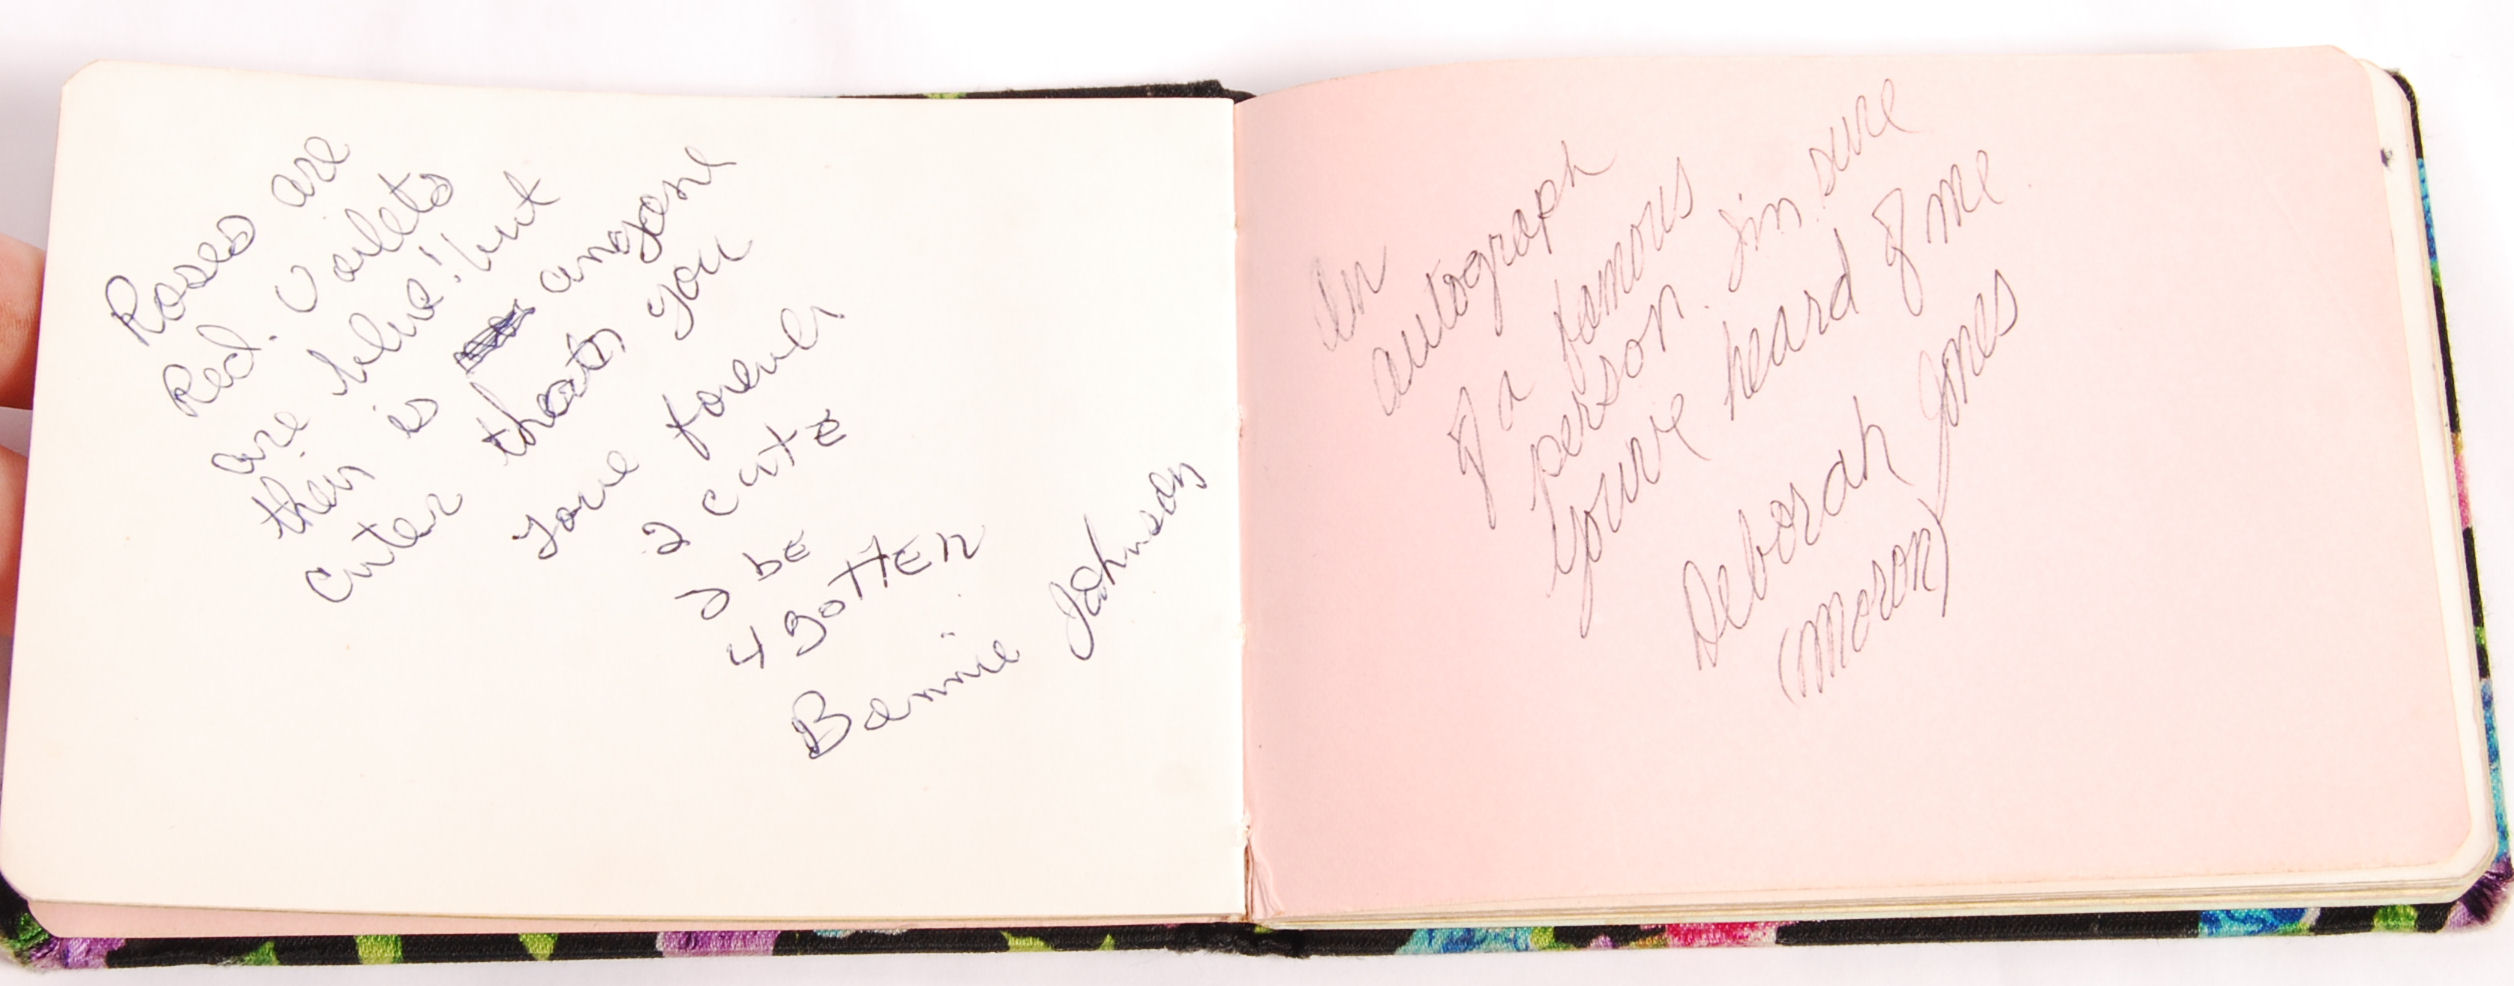 Roses are
Red. Vailets
are blue! but
their is anyone
cuter thats you
your forever
2 cute
2 be
4 gotten
Bennie Johnson
An
autograph
of a famous
person. I'm sure
you've heard of me
Deborah Jones
(Moron)